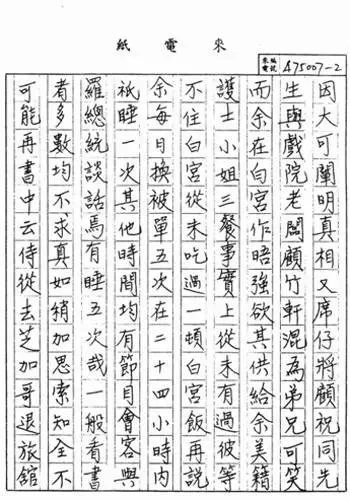 來電紙
來電編號 A75007-2
因大可闡明真相又席仔將顧祝同先
生與戲院老闆顧竹軒混為弟兄可笑
而余在白宮作唔強欲其供給余美籍
護士小姐三餐事實上從未有過彼等
不住白宮從未吃過一頓白宮飯再説
余每日換被單五次在二十四小時內
祇睡一次其他時間均有節目會客與
羅總統談話焉有睡五次哉一般看書
者多數均不求真如稍加思索知全不
可能再書中云侍從去芝加哥退旅舘